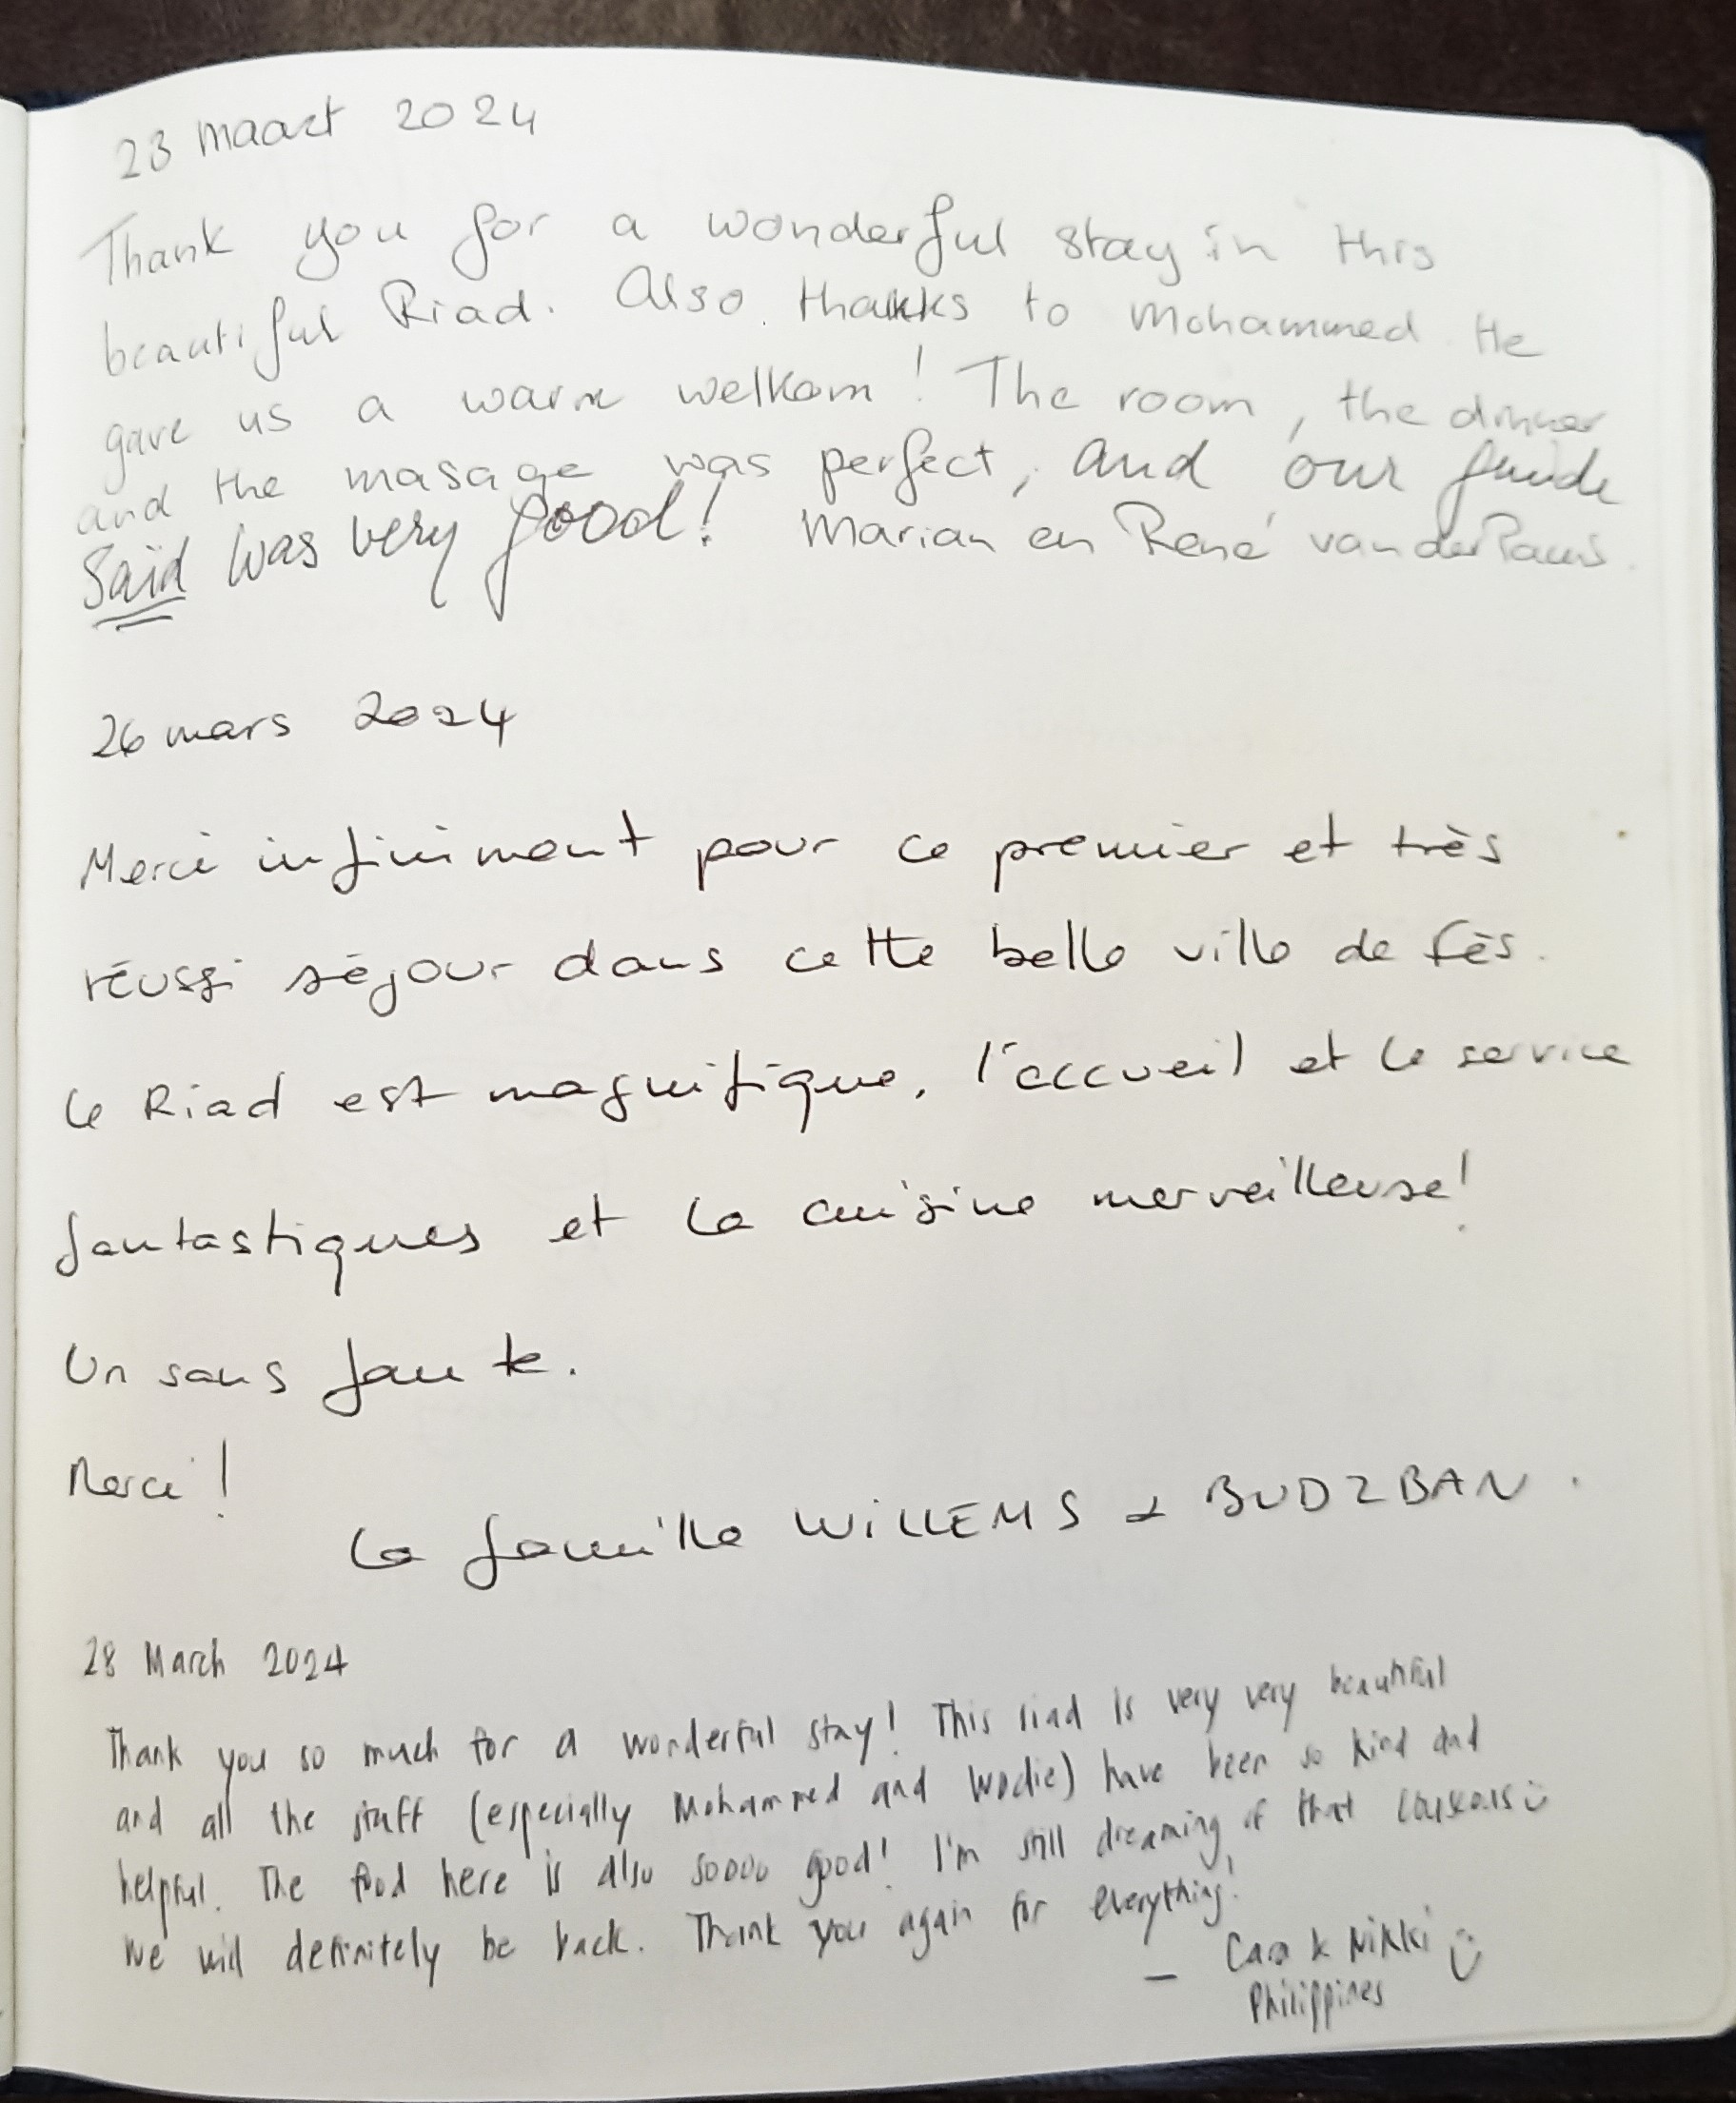 23 maart 2024
Thank you for a wonderful stay in this
beautiful Riad. Also thanks to Mohammed. He
gave us a warm welkom! The room, the dinner
and the masage was perfect, and our guide
Saïd was very good! Marian en René van der
26 mars 2024
Merci infiniment pour ce premier et très
réussi séjour dans cette belle ville de fès.
Le Riad est magnifique, l'accueil et le service
fantastiques et la cuisine merveilleuse!
Un sans faute.
Merci!
La famille WiLLEMS & BUDZBAN.
28 March 2024
Thank you so much for a wonderful stay! This riad is very very beautiful
and all the staff (especially Mohammed and Wodie) have been so kind and
helpful. The food here is also soooo good! I'm still dreaming of that couscous :)
We will definitely be back. Thank you again for everything!
— Cara & Nikki :)
Philippines